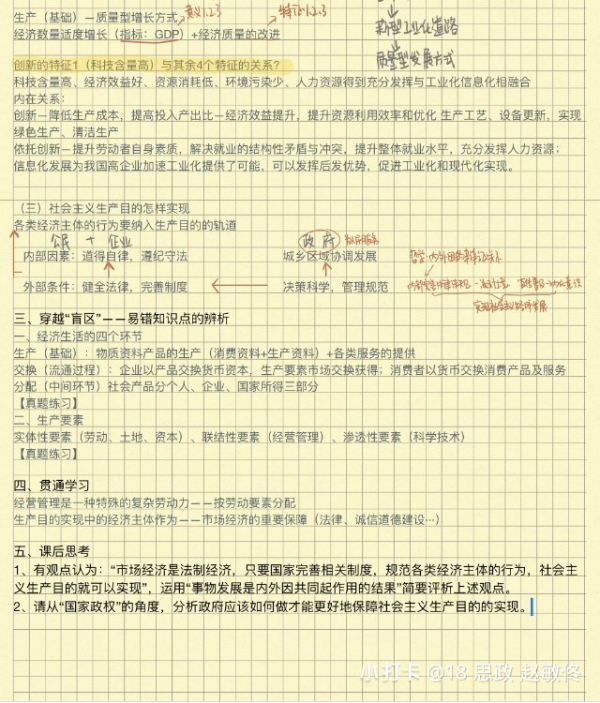 生产（基础）—质量型增长方式 意义1.2.3 特征1.2.3
经济数量适度增长（指标：GDP）+经济质量的改进
新型工业化道路
质量型发展方式
创新的特征1（科技含量高）与其余4个特征的关系？
科技含量高、经济效益好、资源消耗低、环境污染少、人力资源得到充分发挥与工业化信息化相融合
内在关系：
创新—降低生产成本，提高投入产出比—经济效益提升，提升资源利用效率和优化 生产工艺、设备更新，实现
绿色生产、清洁生产
依托创新—提升劳动者自身素质，解决就业的结构性矛盾与冲突，提升整体就业水平，充分发挥人力资源；
信息化发展为我国高企业加速工业化提供了可能，可以发挥后发优势，促进工业化和现代化实现。
（三）社会主义生产目的怎样实现
各类经济主体的行为要纳入生产目的的轨道
公民 + 企业 政府
内部因素：道得自律，遵纪守法 城乡区域协调发展
外部条件：健全法律，完善制度 决策科学，管理规范
三、穿越“盲区”——易错知识点的辨析
一、经济生活的四个环节
生产（基础）：物质资料产品的生产（消费资料+生产资料）+各类服务的提供
交换（流通过程）：企业以产品交换货币资本，生产要素市场交换获得；消费者以货币交换消费产品及服务
分配（中间环节）社会产品分个人、企业、国家所得三部分
【真题练习】
二、生产要素
实体性要素（劳动、土地、资本）、联结性要素（经营管理）、渗透性要素（科学技术）
【真题练习】
四、贯通学习
经营管理是一种特殊的复杂劳动力——按劳动要素分配
生产目的实现中的经济主体作为——市场经济的重要保障（法律、诚信道德建设…）
五、课后思考
1、有观点认为：“市场经济是法制经济，只要国家完善相关制度，规范各类经济主体的行为，社会主
义生产目的就可以实现”，运用“事物发展是内外因共同起作用的结果”简要评析上述观点。
2、请从“国家政权”的角度，分析政府应该如何做才能更好地保障社会主义生产目的的实现。
小打卡 @18 思政 赵敏佟